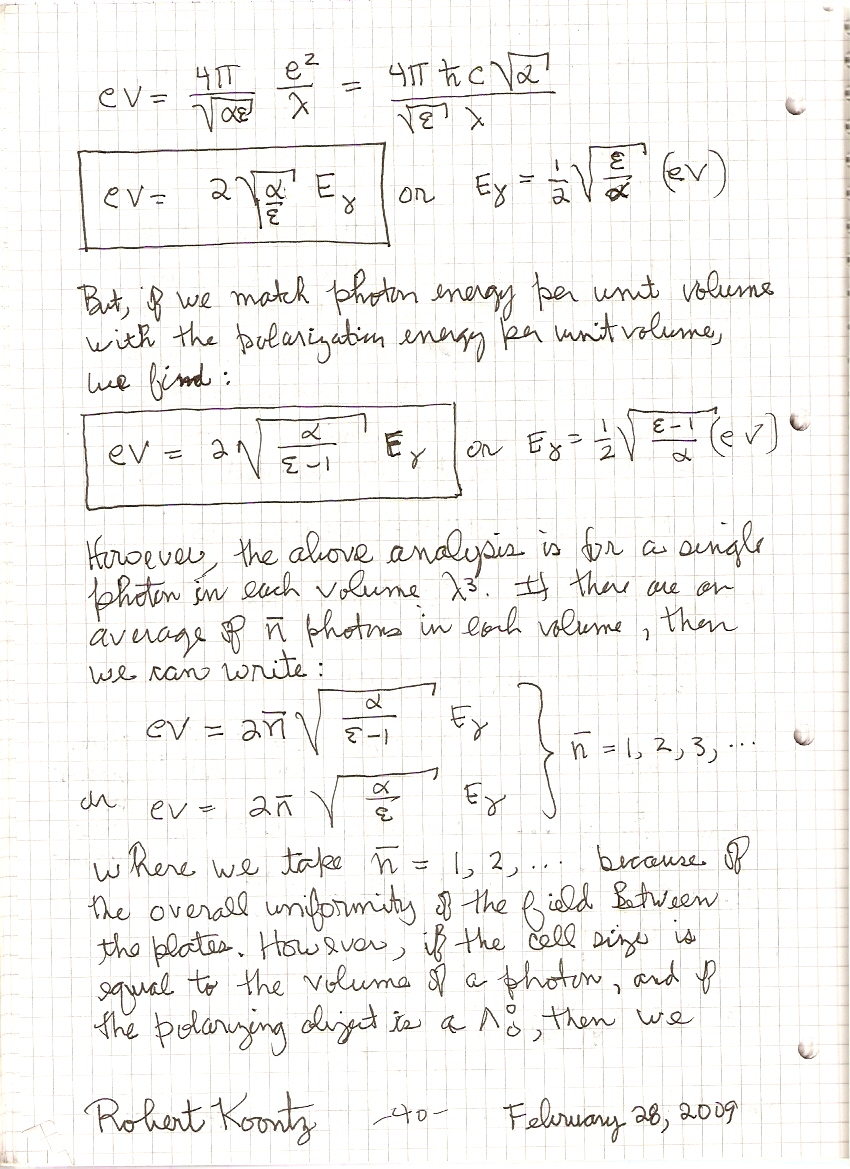 eV = 4π/√(αε) e²/λ = 4π ħ c √α / √ε λ
eV = 2√(α/ε) Eγ or Eγ = 1/2 √(ε/α) (eV)
But, if we match photon energy per unit volume
with the polarization energy per unit volume,
we find:
eV = 2√(α/(ε-1)) Eγ or Eγ = 1/2 √((ε-1)/α) (eV)
However, the above analysis is for a single
photon in each volume λ³. If there are an
average of n̄ photons in each volume, then
we can write:
eV = 2n̄ √(α/(ε-1)) Eγ } n̄ = 1, 2, 3, ...
or eV = 2n̄ √(α/ε) Eγ
where we take n̄ = 1, 2, ... because of
the overall uniformity of the field between
the plates. However, if the cell size is
equal to the volume of a photon, and if
the polarizing object is a , then we
Robert Koontz -40- February 28, 2009